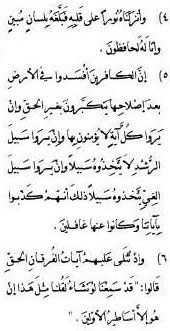 (٤) وأنزلناه نوراً على قلبه فبلّغه بلسان مبين
وإنا له لحافظون.
(٥) إنّ الكافرين أفسدوا في الأرض
بعد إصلاحها يتكبّرون بغير الحق وإن
يروا كلّ آية لا يؤمنون بها وإن يروا سبيل
الرشد لا يتخذوه سبيلاً وإن يروا سبيل
الغيّ يتخذوه سبيلاً ذلك أنهم كذبوا
بآياتنا وكانوا عنها غافلين.
(٦) وإذ تُتلى عليهم آيات الفرقان الحقّ
قالوا: "قد سمعنا لو نشاء لقلنا مثل هذا إن
هو إلا أساطير الأولين."